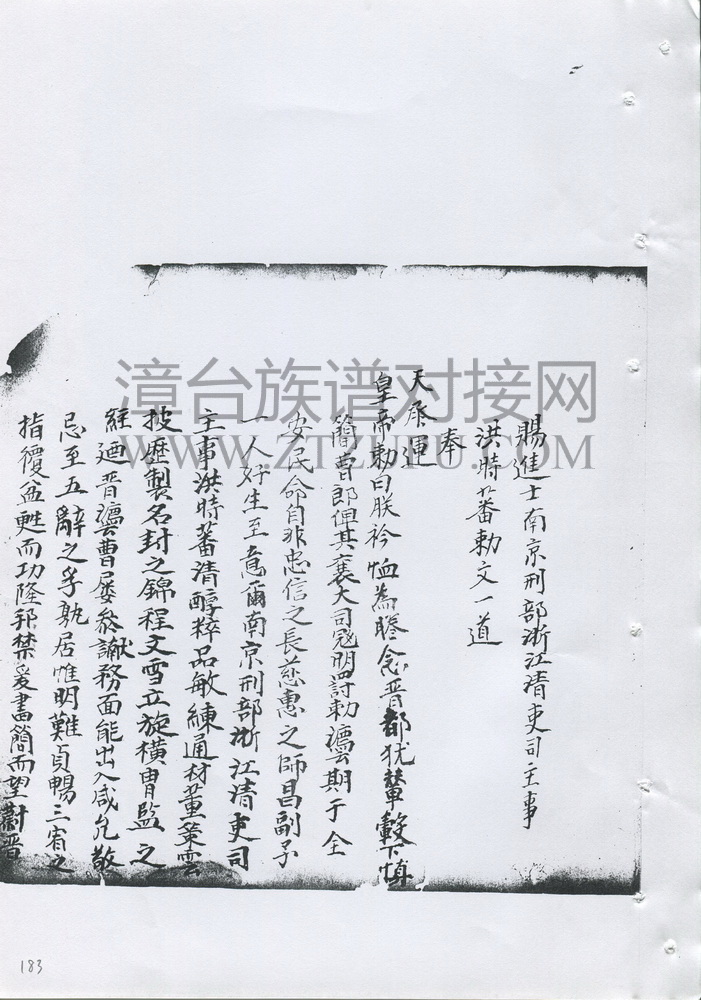 賜進士南京刑部浙江清吏司主事
洪時蕃勅文一道
奉
天承運
皇帝勅曰朕矜恤為懷念晋都犹輦轂下慎
簡曹郎俾其襄大司寇明罰勅讞期于全
安民命自非忠信之長慈惠之師昌副予
一人好生至意爾南京刑部浙江清吏司
主事洪時蕃清醇粹品敏練通材董策雲
披歷製名封之錦程文雪立旋橫冑監之
經廼晋讞曹屢叅讞務面能出入咸允敬
忌至五辭之孚孰居惟明難貞暢三宥之
指覆盆甦而功隆邦禁爰書簡而望蔚晋
漳台族谱对接网
WWW.ZTZUPU.COM
183